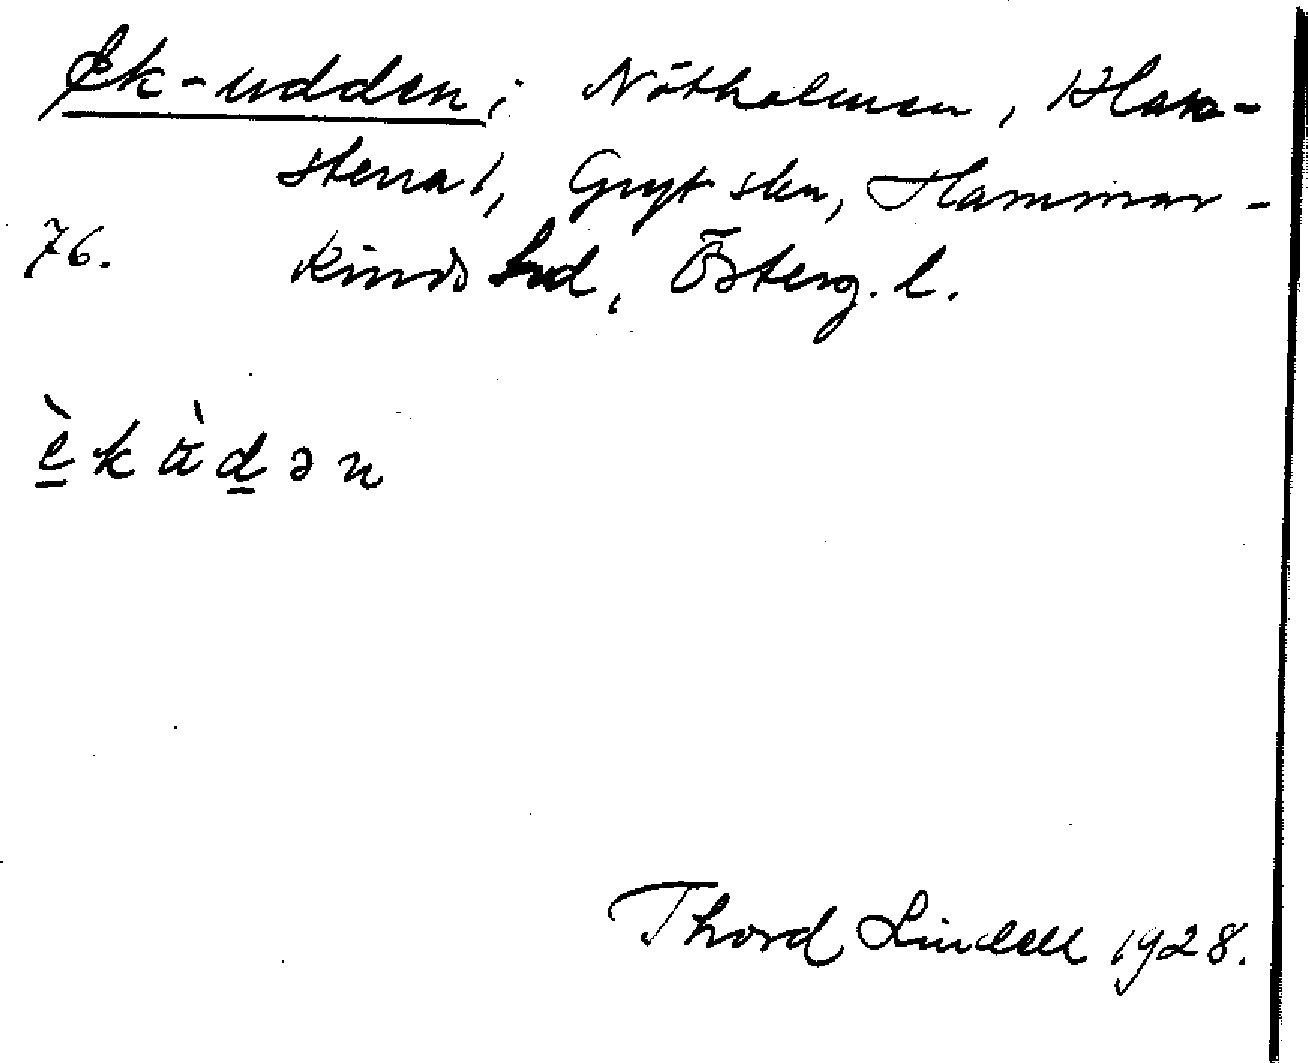 Ek-udden; Nötholmen, Kläm-
stena 1, Gryt skn, Hammar-
76. kinds hd, Österg. l.
è̱kàḏən
Thord Lindell 1928.